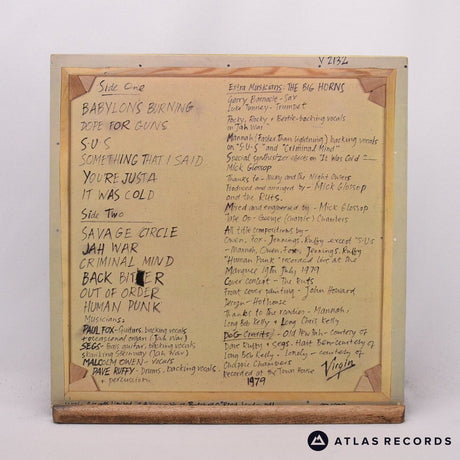 V 2132
Side One
BABYLON'S BURNING
DOPE FOR GUNS
S·U·S
SOMETHING THAT I SAID
YOU'RE JUST A
IT WAS COLD
Side Two
SAVAGE CIRCLE
JAH WAR
CRIMINAL MIND
BACK BITER
OUT OF ORDER
HUMAN PUNK
Musicians:
PAUL FOX - Guitars, backing vocals
+ occasional organ (Jah War)
SEGS - Bass guitar, backing vocals
Steinway (Jah War)
MALCOLM OWEN - Vocals
DAVE RUFFY - Drums, backing vocals
+ percussion
Extra Musicians: THE BIG HORNS
Gary Barnacle - Sax
Luke Tunney - Trumpet
Rocky, Rocky + Bertie - backing vocals
on Jah War
Mannah (Faster than lightning) backing vocals
on "S·U·S" and "Criminal Mind"
Special synthesizer effects on "It Was Cold"
Mick Glossop
Thanks to - Nicky and the Night Owlers
Produced and arranged by - Mick Glossop
and the Ruts.
Mixed and engineered by - Mick Glossop
Tape Op - George (Chopic) Chambers
All title compositions by -
Owen, Fox, Jennings, Ruffy except "S·U·S"
- Mannah, Owen, Fox, Jennings, Ruffy
"Human Punk" recorded live at the
Marquee 19th July 1979
Cover concept - The Ruts
Front cover painting - John Howard
Design - Hothouse
Thanks to the roadies - Mannah,
Long Bob Kelly + Long Chris Kelly
DOG Credits:
Dave Ruffy + Segs.
Long Bob Kelly. courtesy of
Chambers
recorded at the Town House
1979
Virgin
ATLAS RECORDS